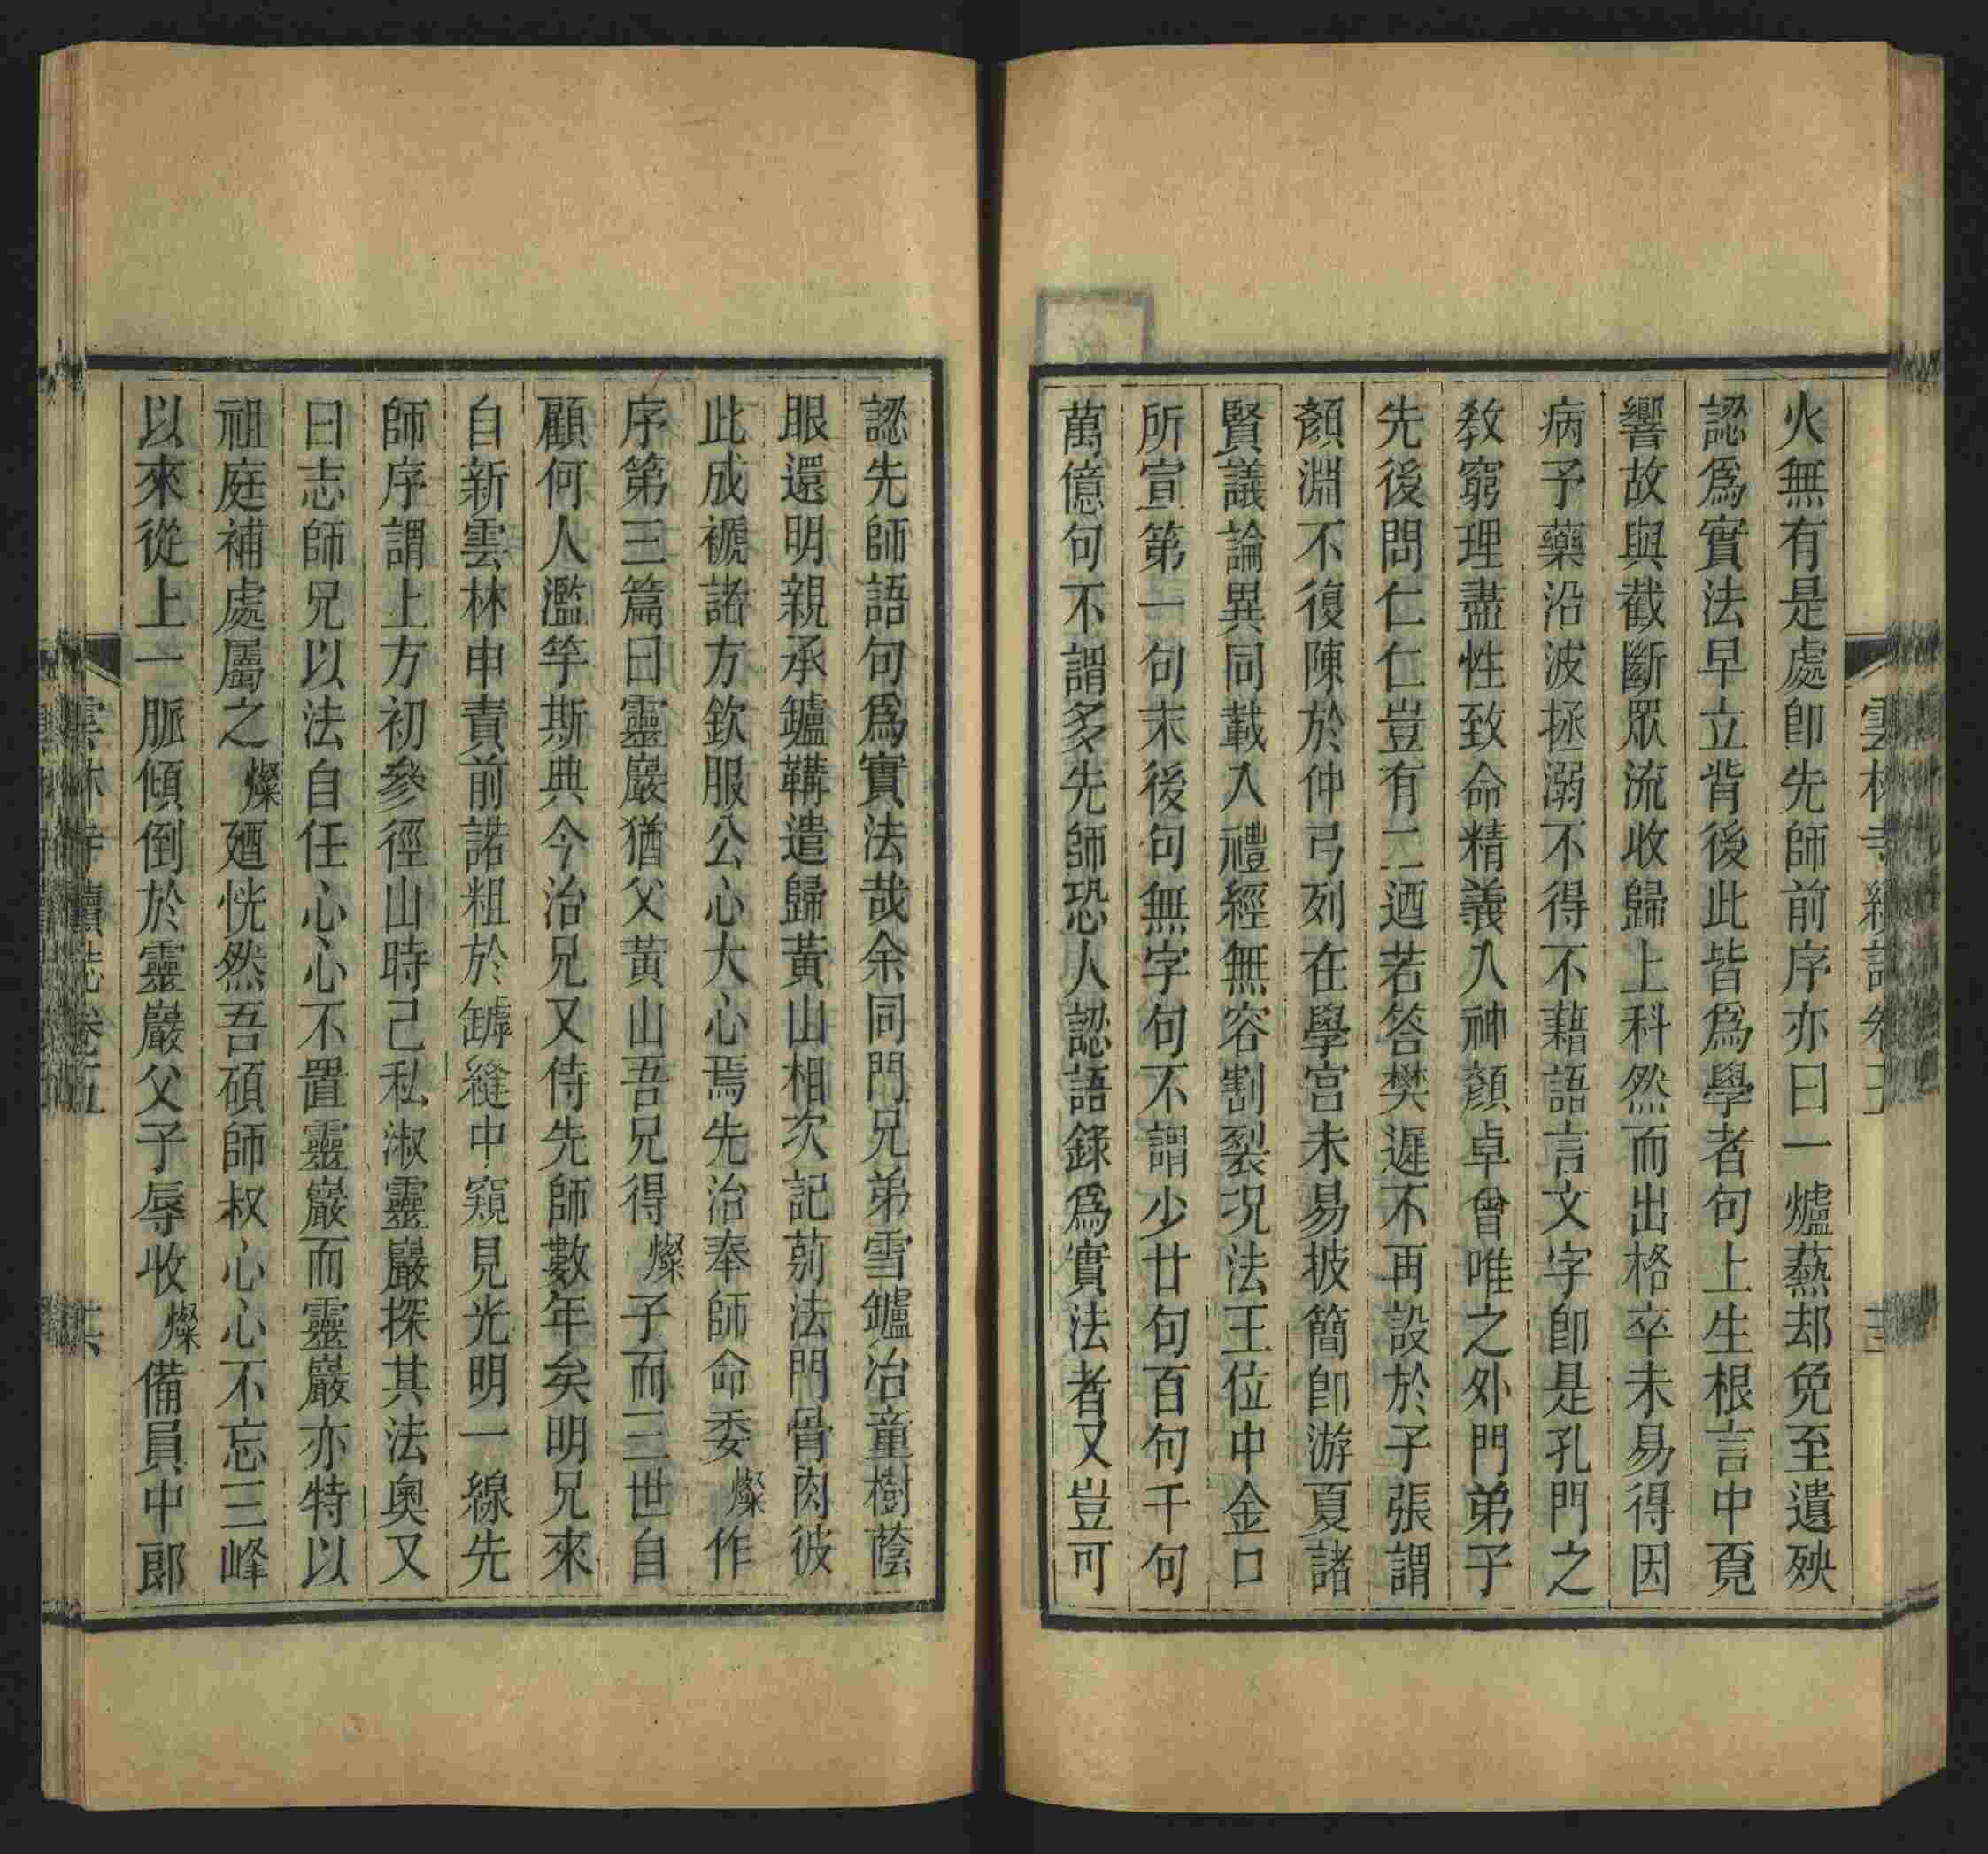 火無有是處卽先師前序亦曰一爐爇却免至遺殃
認爲實法早立背後此皆爲學者句上生根言中覔
響故與截斷眾流收歸上科然而出格卒未易得因
病予藥沿波拯溺不得不藉語言文字卽是孔門之
敎窮理盡性致命精義入神顏卓曾唯之外門弟子
先後問仁仁豈有二迺若答樊遲不再設於子張謂
顏淵不復陳於仲弓列在學宫未易披簡卽游夏諸
賢議論異同載入禮經無容割裂况法王位中金口
所宣第一句末後句無字句不謂少廿句百句千句
萬億句不謂多先師恐人認語錄爲實法者又豈可
認先師語句爲實法哉余同門兄弟雪鑪冶童樹蔭
眼還明親承鑪鞲遣歸黃山相次記莂法門骨肉彼
此成褫諸方欽服公心大心焉先治奉師命委燦作
序第三篇曰靈巖猶父黃山吾兄得燦子而三世自
顧何人濫竽斯典今治兄又侍先師數年矣明兄來
自新雲林申責前諾粗於罅縫中窺見光明一線先
師序謂上方初參徑山時己私淑靈巖探其法奧又
曰志師兄以法自任心心不置靈巖而靈巖亦特以
祖庭補處屬之燦廼恍然吾碩師叔心心不忘三峰
以來從上一脈傾倒於靈巖父子辱收燦備員中郞
雲林寺續誌卷五